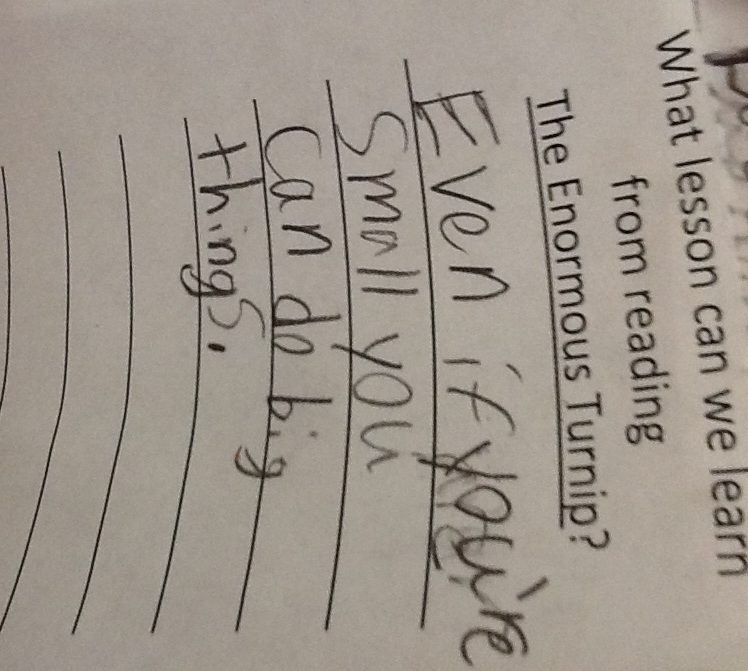 What lesson can we learn
from reading
The Enormous Turnip?
Even if you're
small you
can do big
things.